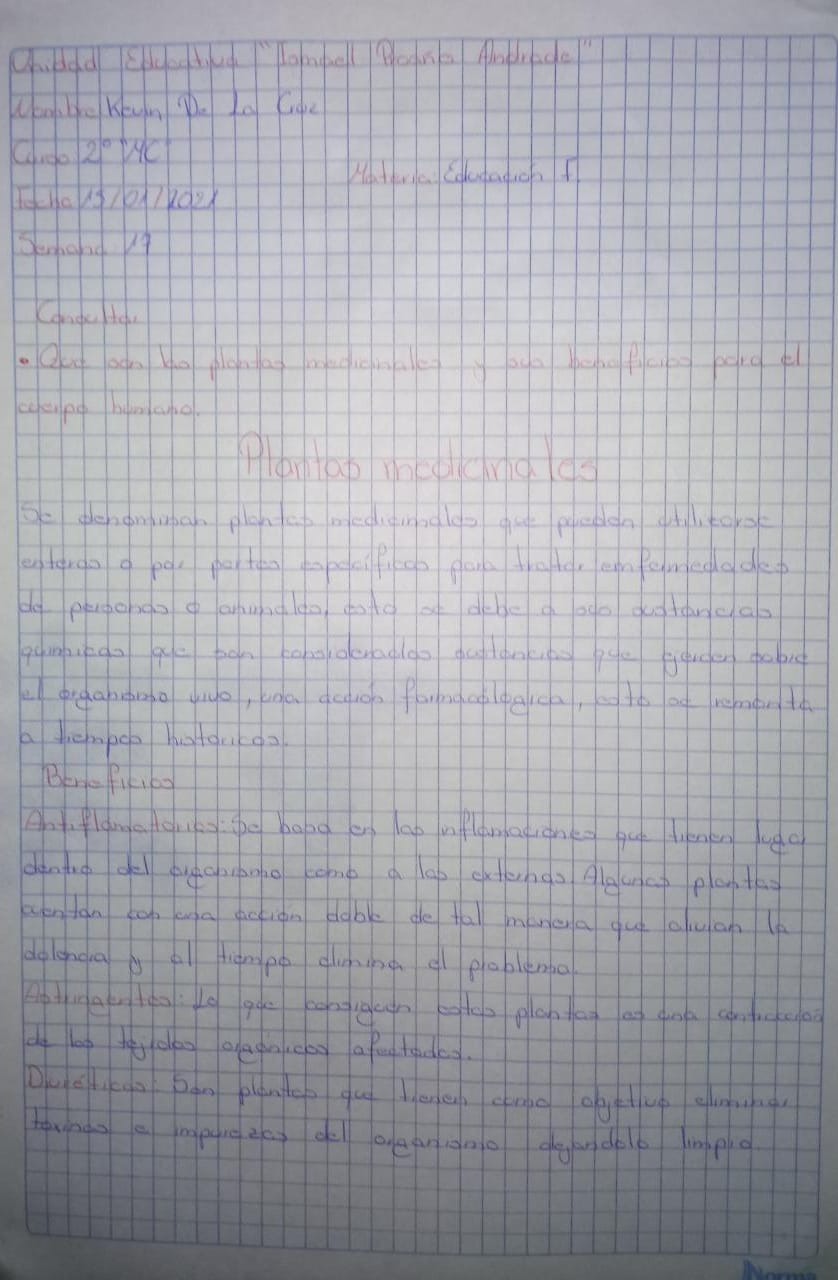 Unidad Educativa "
Nombre Kevin De La Cruz
Curso 2° "C"
Materia: Educación F.
Fecha 15/01/2021
Semana 17
Consulta
• Que son las plantas medicinales y sus beneficios para el
cuerpo humano.
Plantas medicinales
Se denominan plantas medicinales que pueden utilizarse
enteras o por partes especificas para tratar enfermedades
de personas o animales, esto se debe a sus sustancias
quimicas que son consideradas sustancias que ejercen sobre
el organismo vivo, una acción farmacológica, esto se remonta
a tiempos historicos.
Beneficios
Antiflamatorios: Se basa en las inflamaciones que tienen lugar
dentro del organismo como a las externas. Algunas plantas
cuentan con una acción doble de tal manera que alivian la
dolencia y al tiempo elimina el problema.
Astringentes: Lo que consiguen estas plantas es una
de los tejidos organicos afectados.
Diuréticas: Son plantas que tienen como objetivo eliminar
toxinas e impurezas del organismo dejandolo limpio.
Norma